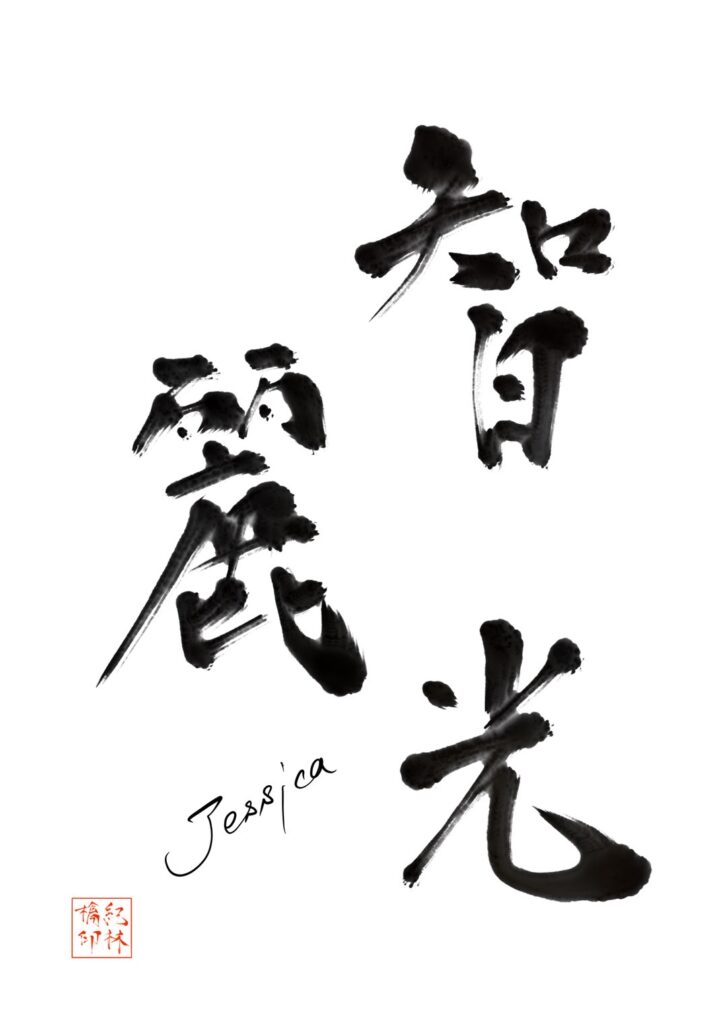 智光
麗
Jessica
紀林
檎印